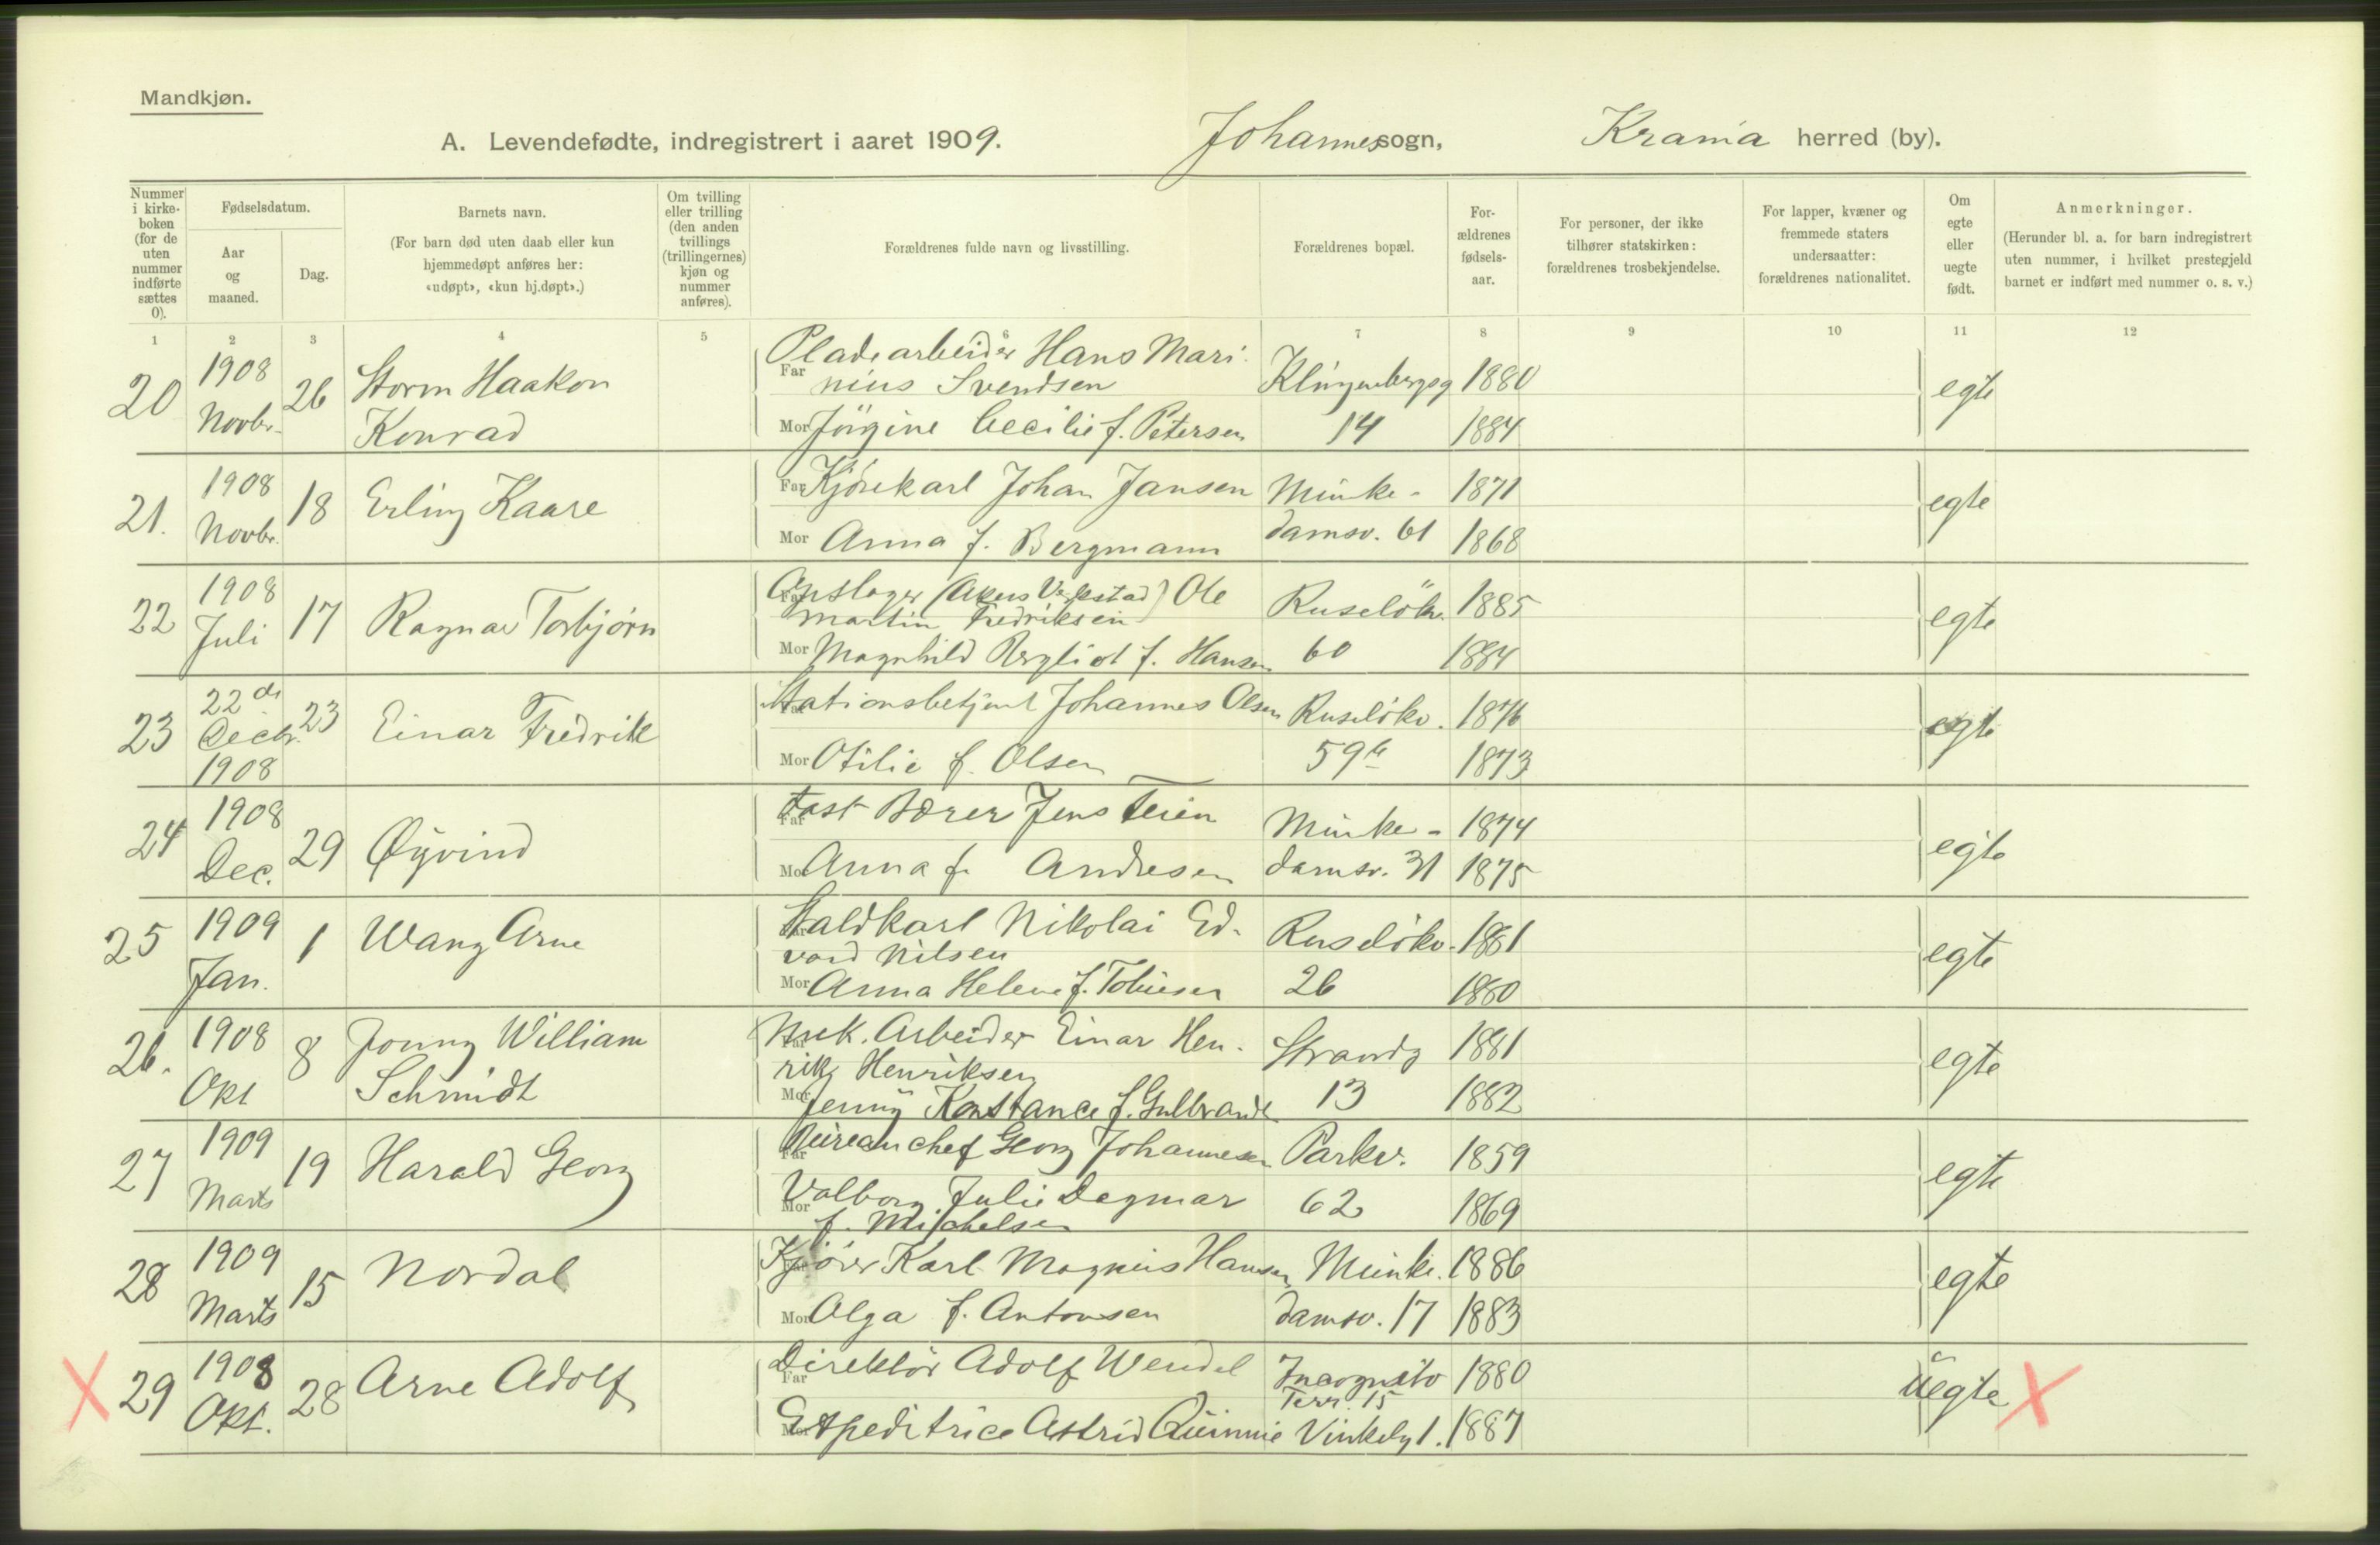 Mandkjøn.
A. Levendefødte, indregistrert i aaret 1909. Johannes sogn, Krania herred (by).
Nummer i kirke-boken (for de uten nummer indførte sættes 0).
Fødselsdatum.
Aar og maaned.
Dag.
Barnets navn.
(For barn død uten daab eller kun hjemmedøpt anføres her: «udøpt», «kun hj.døpt».)
Om tvilling eller trilling (den anden tvillings (trillingernes) kjøn og nummer anføres).
Forældrenes fulde navn og livsstilling.
Forældrenes bopæl.
For-ældrenes fødsels-aar.
For personer, der ikke tilhører statskirken: forældrenes trosbekjendelse.
For lapper, kvæner og fremmede staters undersaatter: forældrenes nationalitet.
Om egte eller uegte født.
Anmerkninger.
(Herunder bl. a. for barn indregistrert uten nummer, i hvilket prestegjeld barnet er indført med nummer o. s. v.)
1 2 3 4 5 6 7 8 9 10 11 12
20 1908 Novbr. 26 Storm Haakon Konrad
Far Pladearbeider Hans Marinius Svendsen Klingenbergsg 1880 egte
Mor Jörgine Cecilie f. Petersen 14 1884
21. 1908 Novbr. 18 Erling Kaare
Far Kjörekarl Johan Jansen Munke- 1871 egte
Mor Anna f. Bergmann damsv. 61 1868
22 1908 Juli 17 Ragnar Torbjörn
Far Opslager (Akers Verkstad) Ole Martin Fredriksen Ruselökv. 1885 egte
Mor Magnhild Bergliot f. Hansen 60 1884
23 22 de Decbr. 1908 23 Einar Fredrik
Far Stationsbetjent Johannes Olsen Ruselökv. 1876 egte
Mor Otilie f. Olsen 59 b 1873
24 1908 Dec. 29 Øyvind
Far Fast Bærer Jens Teien Munke- 1874 egte
Mor Anna f. Andresen damsv. 31 1875
25 1909 Jan. 1 Wang Arne
Far Staldkarl Nikolai Edvard Nilsen Ruselökv. 1881 egte
Mor Anna Helene f. Tobiesen 26 1880
26. 1908 Okt 8 Jonny William Schmidt
Far Mek. Arbeider Einar Henrik Henriksen Strandg 1881 egte
Mor Jenny Konstance f. Gulbrands 13 1882
27 1909 Marts 19 Harald Georg
Far Bureauchef Georg Johannesen Parkv. 1859 egte
Mor Valborg Julie Dagmar f. Michelsen 62 1869
28 1909 Marts 15 Nordal
Far Kjörer Karl Magnus Hansen Munke. 1886 egte
Mor Olga f. Antonsen damsv. 17 1883
X 29 1908 Okt. 28 Arne Adolf
Far Direktör Adolf Wendel Incognito Terr. 15 1880 uegte X
Mor Expeditrice Astrid Vinkelg 1. 1887